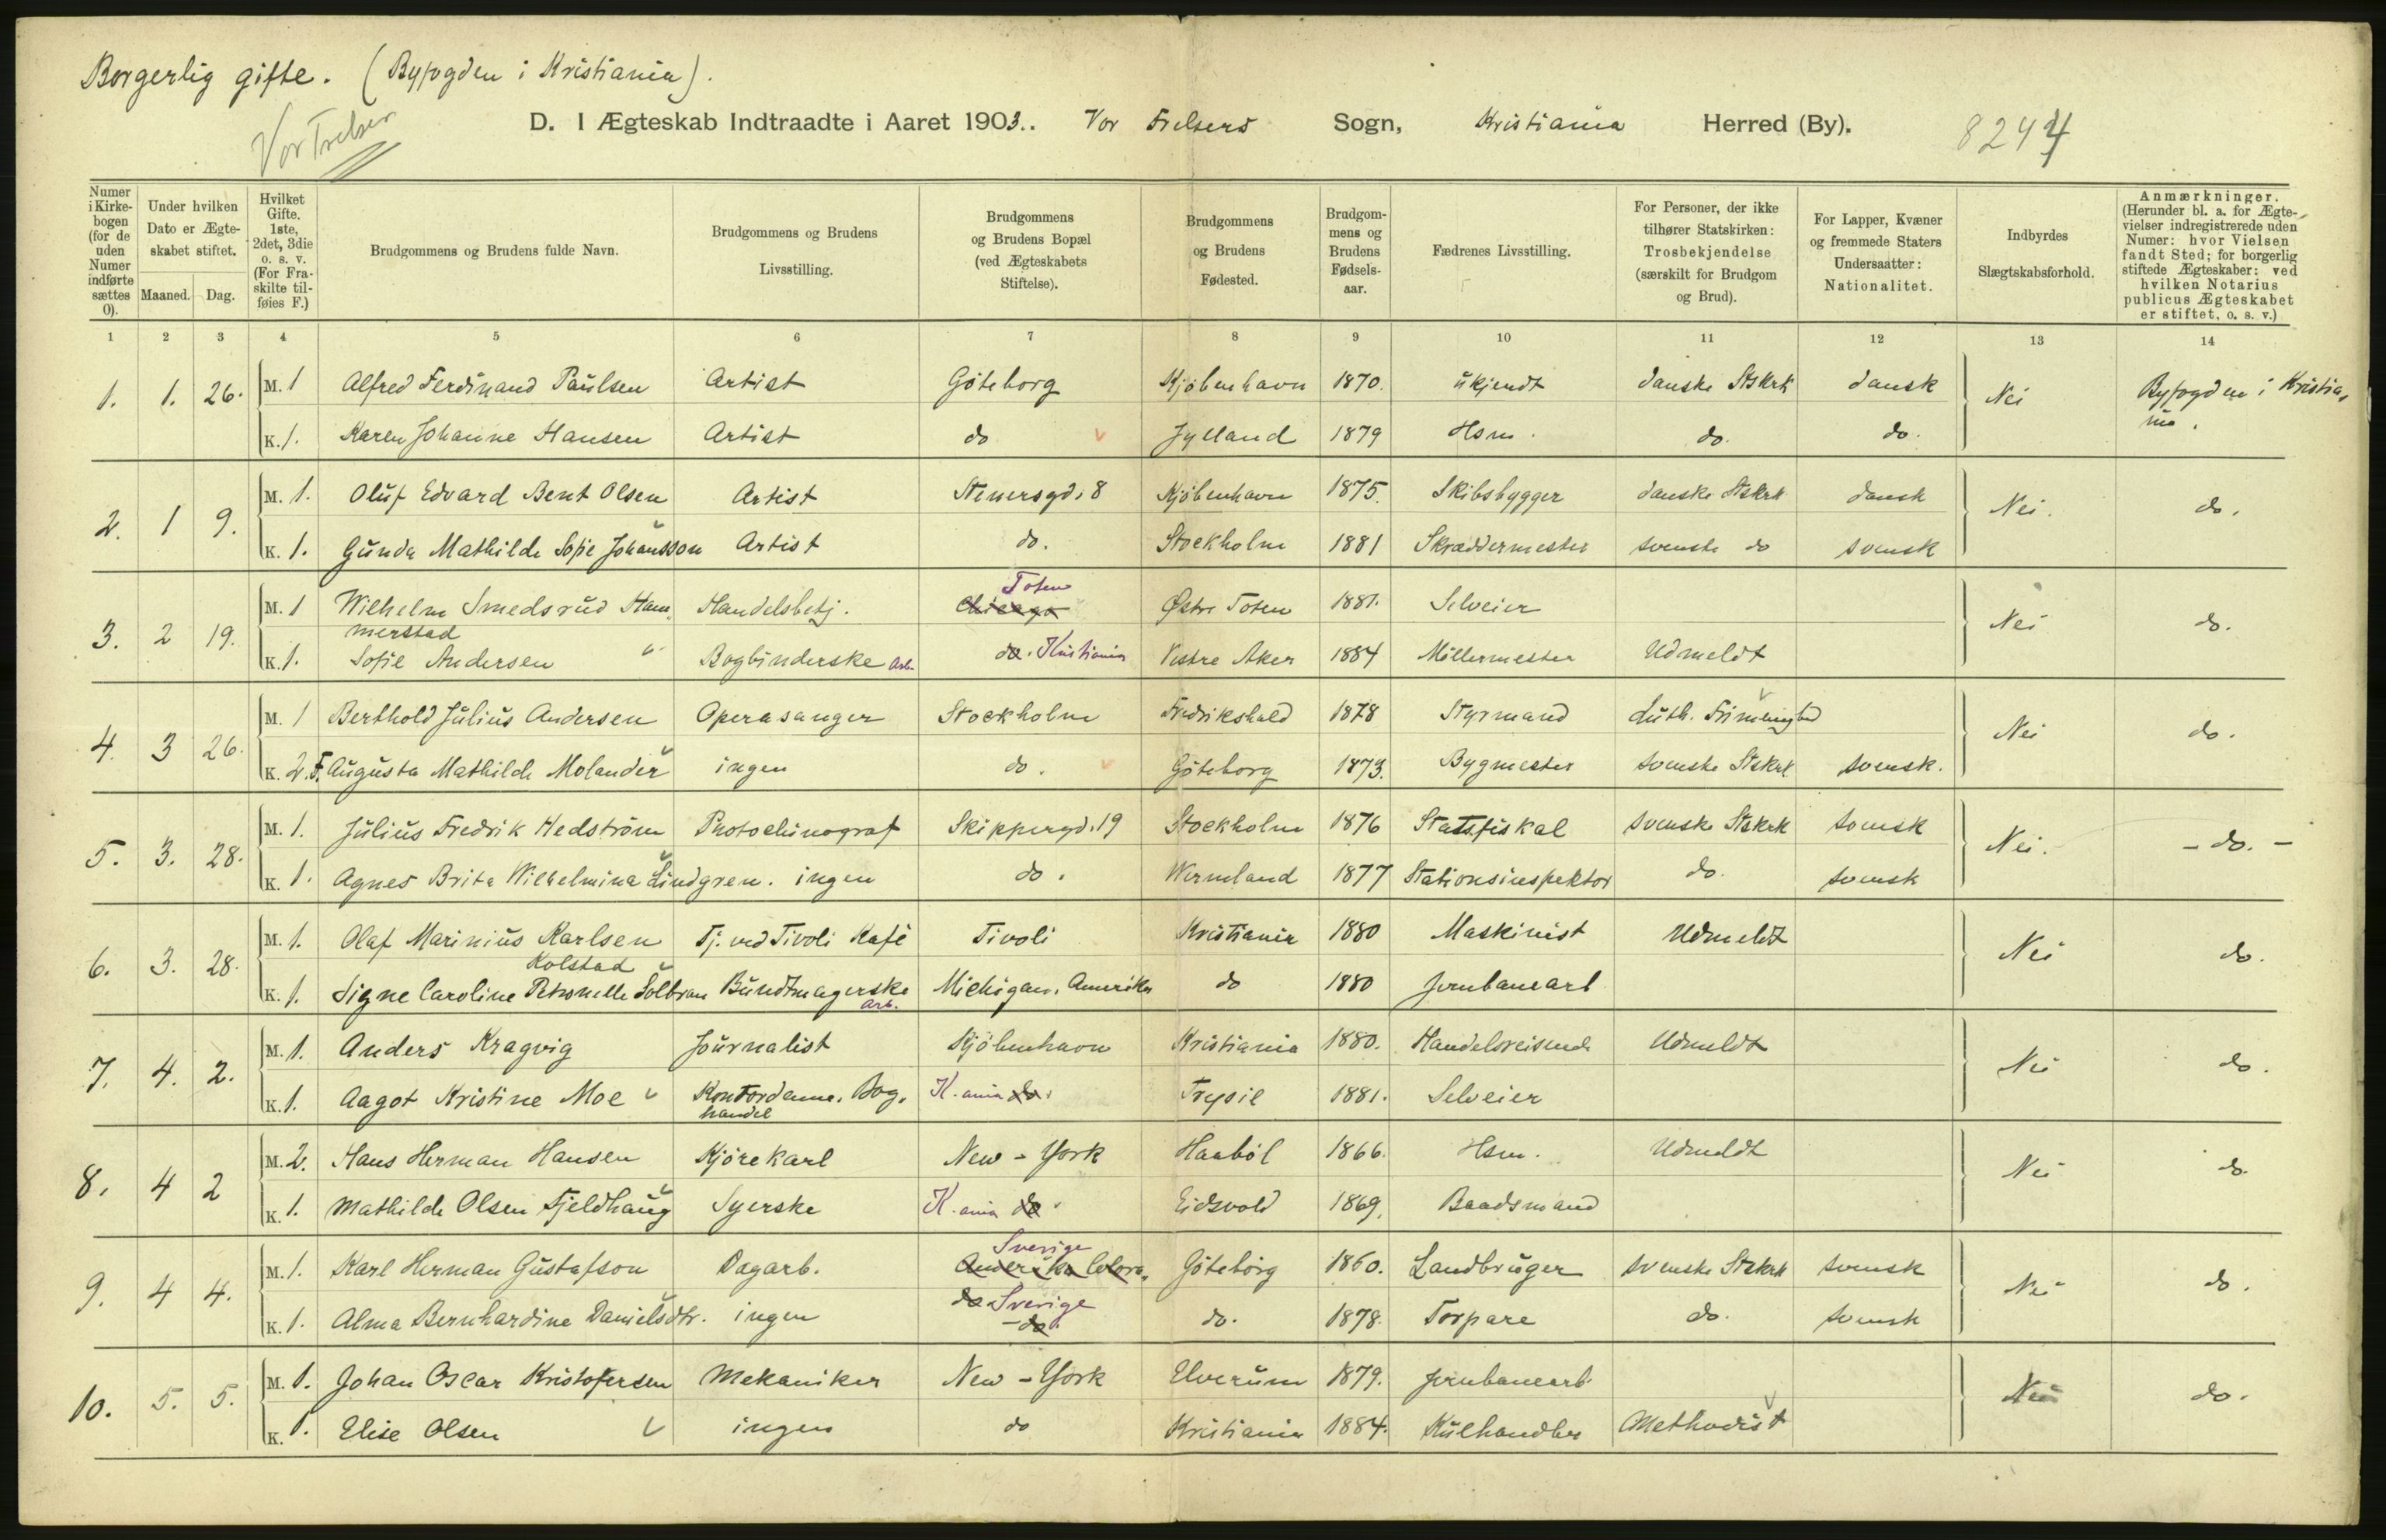 Borgerlig gifte. (Byfogden i Kristiania).
Vor Frelser
D. I Ægteskab Indtraadte i Aaret 1903. Vor Frelsers Sogn, Kristiania Herred (By). 8244
Numer i Kirkebogen (for de uden Numer indførte sættes 0).
Under hvilken Dato er Ægteskabet stiftet. Maaned. Dag.
Hvilket Gifte. 1ste, 2det, 3die o. s. v. (For Fraskilte tilføies F.)
Brudgommens og Brudens fulde Navn.
Brudgommens og Brudens Livsstilling.
Brudgommens og Brudens Bopæl (ved Ægteskabets Stiftelse).
Brudgommens og Brudens Fødested.
Brudgommens og Brudens Fødselsaar.
Fædrenes Livsstilling.
For Personer, der ikke tilhører Statskirken: Trosbekjendelse (særskilt for Brudgom og Brud).
For Lapper, Kvæner og fremmede Staters Undersaatter: Nationalitet.
Indbyrdes Slægtskabsforhold.
Anmærkninger. (Herunder bl. a. for Ægtevielser indregistrerede uden Numer: hvor Vielsen fandt Sted; for borgerlig stiftede Ægteskaber: ved hvilken Notarius publicus Ægteskabet er stiftet, o. s. v.)
1 2 3 4 5 6 7 8 9 10 11 12 13 14
1. 1. 26. M. 1 Alfred Ferdinand Paulsen Artist Göteborg Kjøbenhavn 1870. ukjendt danske Stskrk dansk Nei Byfogden i Kristiania.
K. 1. Karen Johanne Hansen Artist do Jylland 1879 Hsm. do. do.
2. 1 9. M. 1. Oluf Edvard Bent Olsen Artist Stenersgd. 8 Kjøbenhavn 1875. Skibsbygger danske Stskrk dansk Nei. do.
K. 1. Gunda Mathilde Sofie Johansson Artist do. Stockholm 1881 Skræddermester svenske do svensk
3. 2 19. M. 1 Wilhelm Smedsrud Hammerstad Handelsbetj. Chicago Toten Østre Toten 1881. Selveier Nei do.
K. 1. Sofie Andersen Bogbinderske Arb. do. Kristiania Vestre Aker 1884 Møllermester Udmeldt
4. 3 26. M. 1 Berthold Julius Andersen Operasanger Stockholm Fredrikshald 1878 Styrmand Luth. Frimenighed Nei do.
K. 2.F. Augusta Mathilde Molander ingen do. Göteborg 1873. Bygmester svenske Stskrk svensk.
5. 3. 28. M. 1. Julius Fredrik Hedström Photochinograf Skippergd. 19 Stockholm 1876 Statsfiskal svenske Stskrk svensk Nei. - do. -
K. 1. Agnes Brita Wilhelmina Lindgren. ingen do. Wermland 1877 Stationsinspektor do. svensk
6. 3. 28. M. 1. Olaf Marinius Karlsen Kolstad Tj. ved Tivoli Kafé Tivoli Kristiania 1880 Maskinist Udmeldt Nei do.
K. 1. Signe Caroline Petronelle Solbran Bundtmagerske Arb. Michigan, Amerika do 1880 Jernbanearb
7. 4. 2. M. 1. Anders Kragvig Journalist Kjøbenhavn Kristiania 1880. Handelsreisende Udmeldt Nei do.
K. 1. Aagot Kristine Moe Kontordame. Boghandel K.ania do. Trysil 1881. Selveier
8. 4 2 M. 2. Hans Herman Hansen Kjørekarl New-York Haabøl 1866. Hsm. Udmeldt Nei do.
K. 1. Mathilde Olsen Fjeldhaug Syerske K.ania do. Eidsvold 1869. Baadsmand
9. 4 4. M. 1. Karl Herman Gustafson Dagarb. Sverige Amerika Colorado Göteborg 1860. Landbruger svenske Stskrk svensk Nei do.
K. 1. Alma Bernhardine Danielsdtr. ingen Sverige -do. do. 1878. Torpare do. svensk
10. 5. 5. M. 1. Johan Oscar Kristofersen Mekaniker New-York Elverum 1879. Jernbanearb. Nei do.
K. 1. Elise Olsen ingen do Kristiania 1884. Kulhandler Methodist